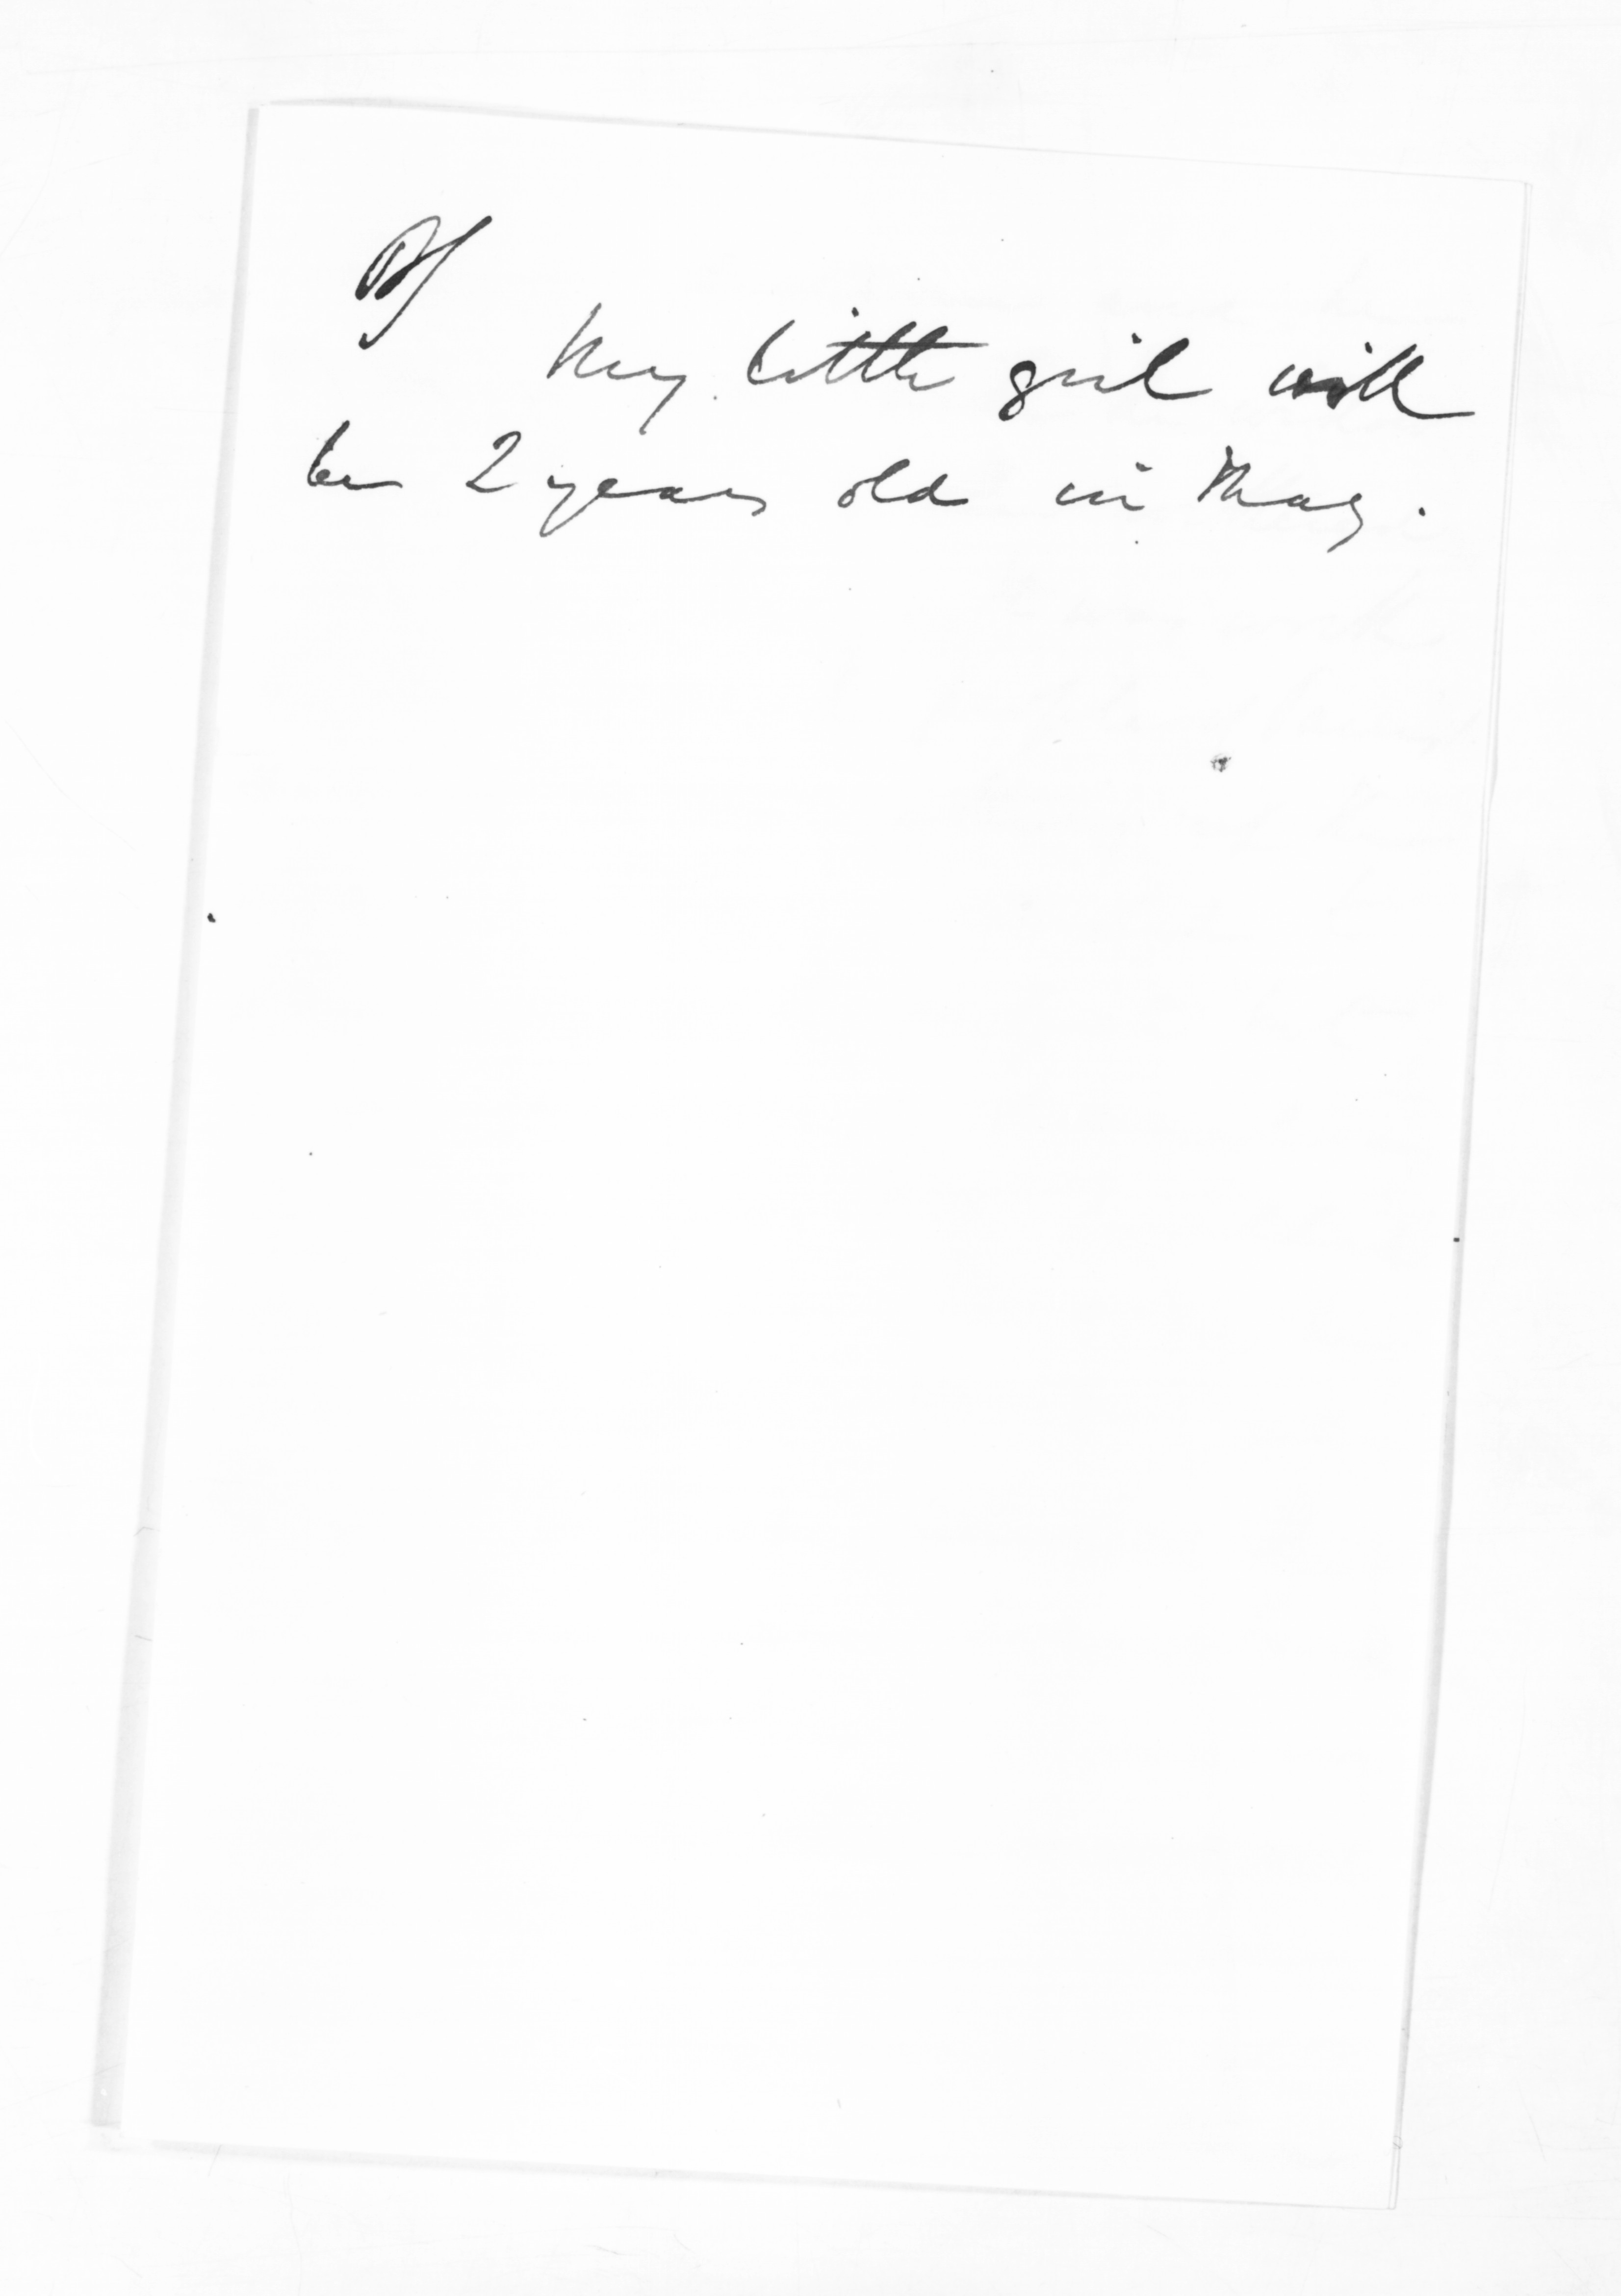 My little girl will
be 2 years old in May.